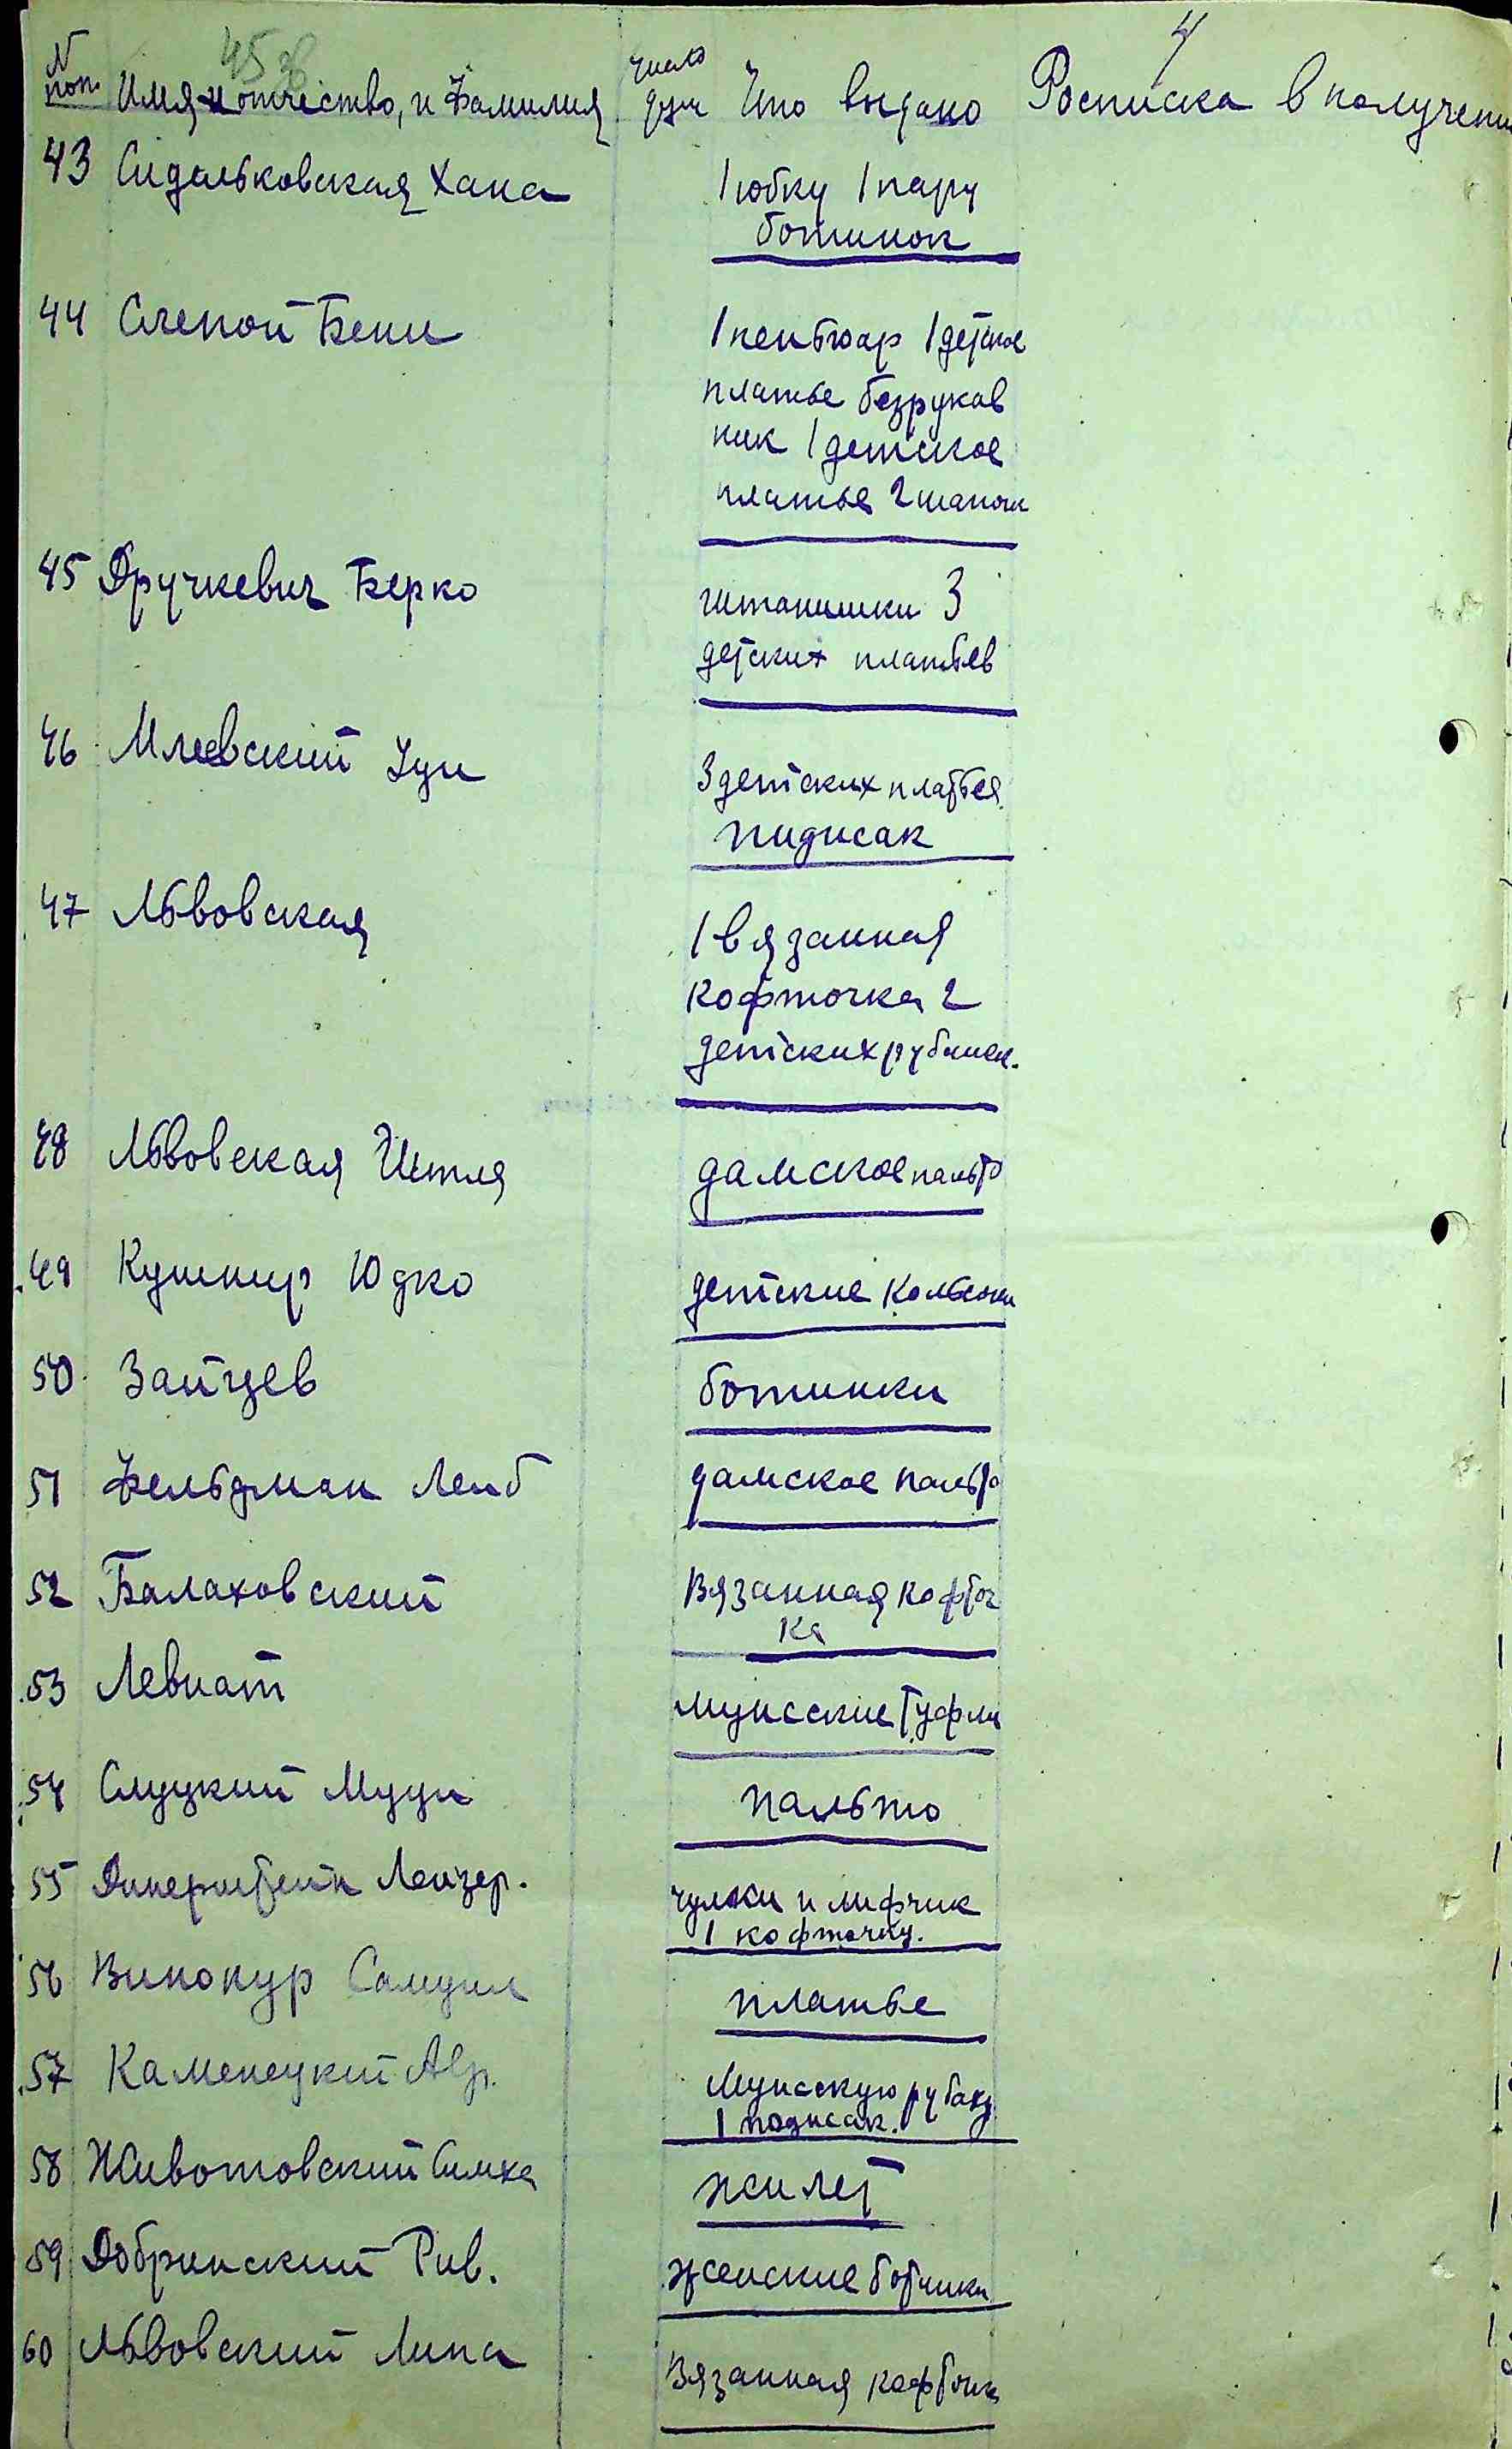 4
45 зв
N поп. Имя и отчество, и Фамилия число душ Что выдано Росписка в получени
43 Сидальковская Хана 1 юбку 1 пару
ботинок
44 Слепой Бени 1 пеньюар 1 детское
платье безрукав
ник 1 детское
платье 2 шапочк
45 Дручкевич Берко штанишки 3
детских платьев
46 Млиевский Зун 3 детских платья
пиджак
47 Львовская 1 вязанная
кофточка 2
детских рубашек.
48 Львовская Штля дамское пальто
49 Кушнир Юдко детские кальсоны
50 Зайцев ботинки
51 Фельдман Лейб дамское пальто
52 Балаховский Вязанная кофточ
ка
53 Левиат мужские туфли
54 Слуцкий Муди пальто
55 Динерштейн Лейзер. чулки и лифчик
1 кофточку.
56 Винокур Самуил платье
57 Каменецкий Абр. Мужскую рубаху
1 подисак.
58 Животовский Симха жилет
59 Добринский Рив. женские ботинки
60 Львовский Липа Вязанная кофточка